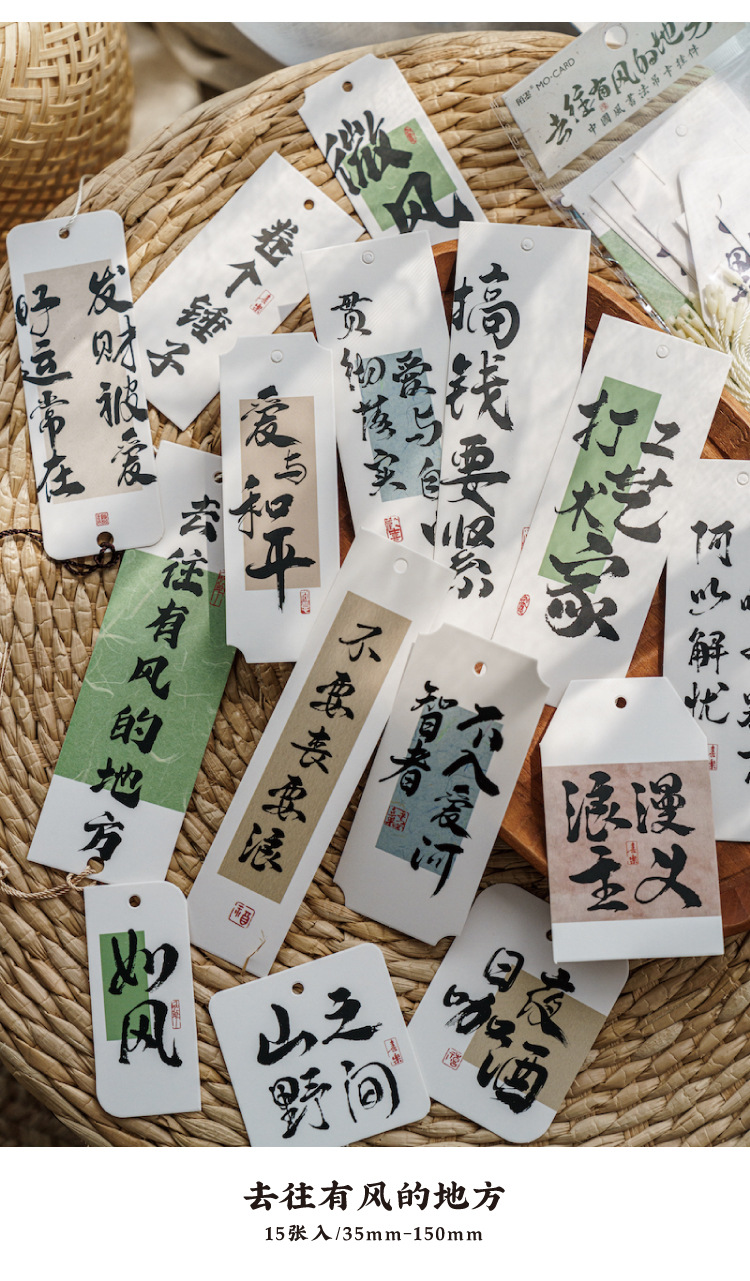 陌迟® MO·CARD
去往有风的地方
中国风书法吊卡挂件
微风
卷个锤子
发财被爱
好运常在
贯彻落实
爱与自
搞钱要紧
爱与和平
打工
艺术家
何以解忧
去往有风的地方
不要丧要浪
智者
不入爱河
浪漫
主义
如风
山野
之间
日咖
夜酒
去往有风的地方
15张入/35mm-150mm